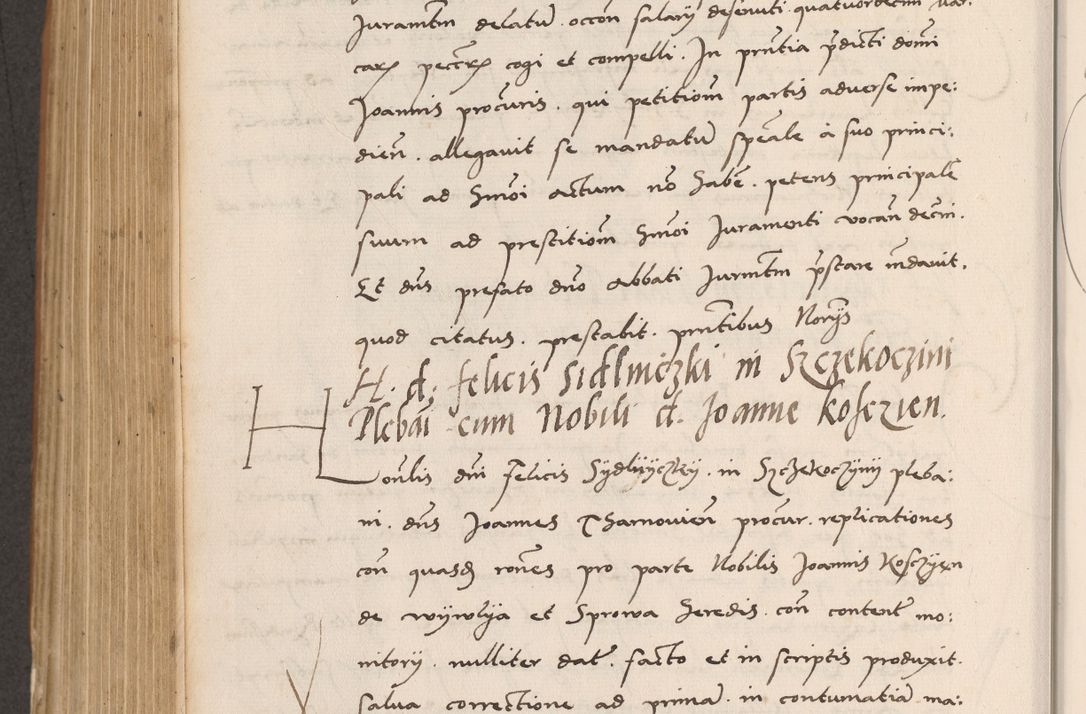 Juramtm delatū. occon salarÿ deservti quatuordecim mar:
carz pecctrz cogi et compelli. In pr̄ntia p̄dicti domi
Joannis procuris. qui petitiom̄ partis adverse impe:
dien̄. allegavit se mandatū spēale à suo princi:
pali ad hm̄oi actum nō habē. petens principalē
suum ad prestitiom̄ hm̄oi Juramenti vocan̄ decm̄.
Et dn̄s prefato dn̄o Abbati Jurmtm̄ p̄stare mdavit.
quod citatus. prestabit. pn̄tibus Norÿs
H. d. felicis Sidlniczki in Szczekoczini
Plebai cum Nobili d. Joanne kosczien.
Honlis dn̄i Felicis Sydlnyczky. in Szczekoczyny pleba:
ni. dn̄s Joannes Tharnovien̄ procur. replicationes
con̄ quasdz rōnes pro parte Nobilis Joannis Kosczyen
de wywlya et Sprowa heredis. con̄ content̄ mo:
nitory. nulliter dat̄. facto et in scriptis produxit.
salva correctione ad primā. in contumatiā ma: